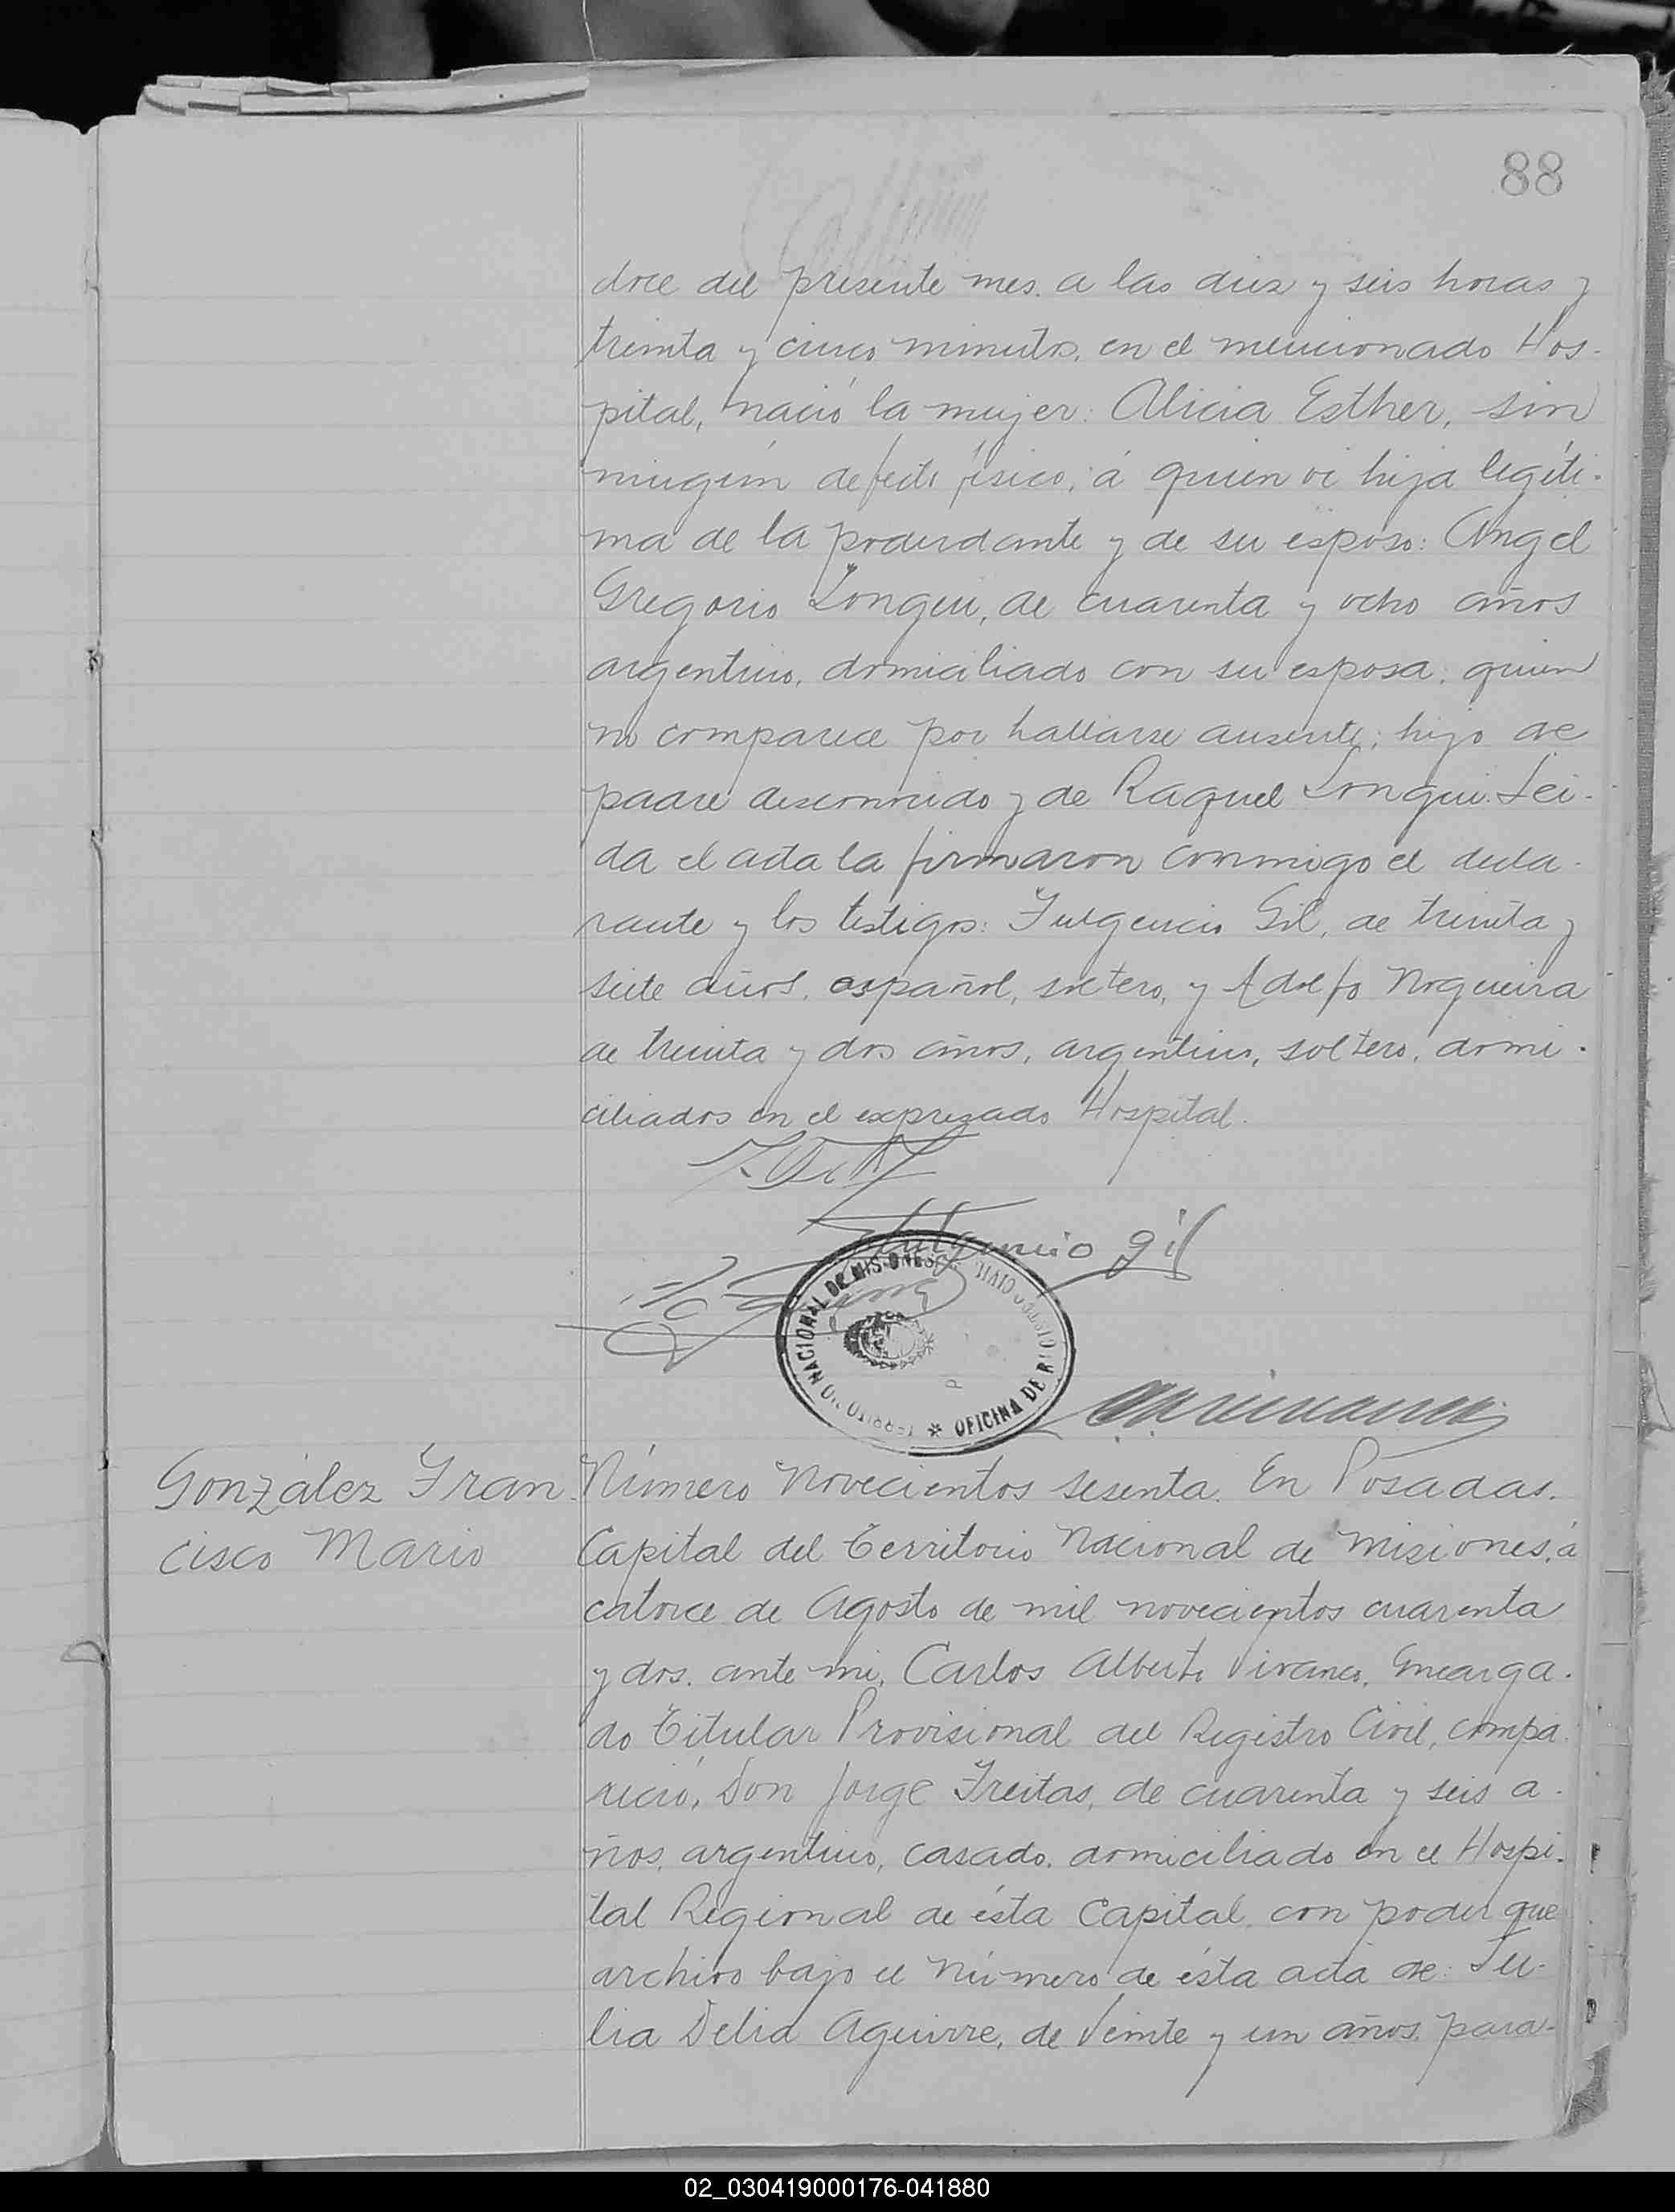 88
doce del presente mes. a las diez y seis horas y
treinta y cinco minutos, en el mencionado Hos-
pital, nació la mujer: Alicia Esther, sin
ningún defecto físico; á quien vi hija legíti-
ma de la poderdante y de su esposo: Angel
Gregorio Longui, de cuarenta y ocho años
argentino, domiciliado con su esposa; quien
no comparece por hallarse ausente; hijo de
padre desconocido y de Raquel Longui. Leí-
da el acta la firmaron conmigo el decla-
rante y los testigos: Fulgencio Gil, de treinta y
siete años, español, soltero, y Adolfo Nogueira
de treinta y dos años, argentino, soltero, domi-
ciliados en el expresado Hospital.
Fulgencio Gil
TERRITORIO NACIONAL DE MISIONES
OFICINA DE REGISTRO CIVIL
González Fran-
cisco Mario
Número Novecientos sesenta. En Posadas.
Capital del Territorio Nacional de Misiones, á
catorce de Agosto de mil novecientos cuarenta
y dos. ante mi, Carlos Alberto Vivanco, Encarga-
do Titular Provisional del Registro Civil, compa-
reció, Don Jorge Freitas, de cuarenta y seis a-
ños, argentino, casado, domiciliado en el Hospi-
tal Regional de ésta Capital, con poder que
archivo bajo el número de ésta acta de: Ju-
lia Delia Aguirre, de veinte y un años, para-
02_030419000176-041880